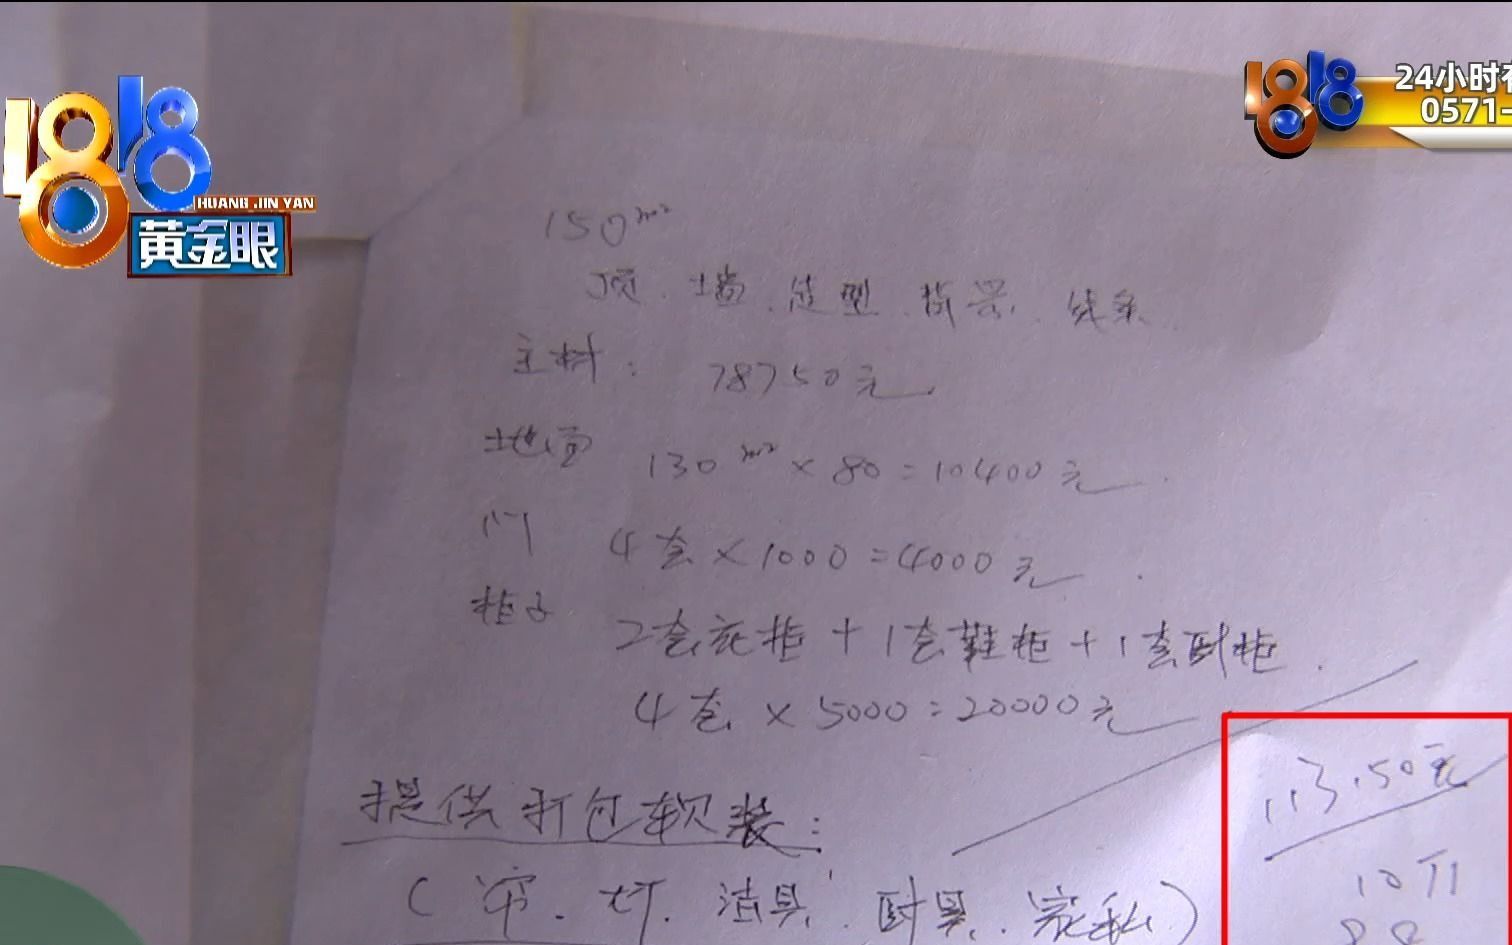 1818
HUANG JIN YAN
黄金眼
1818
24小时
0571-
150m²
顶、墙、造型、背景、线条
主材: 78750元
地面 130m²×80=10400元
门 4套×1000=4000元
柜子
2套衣柜+1套鞋柜+1套厨柜
4套×5000=20000元
113.50元
提供打包软装:
10万
(窗、灯、洁具、厨具、家私)
88